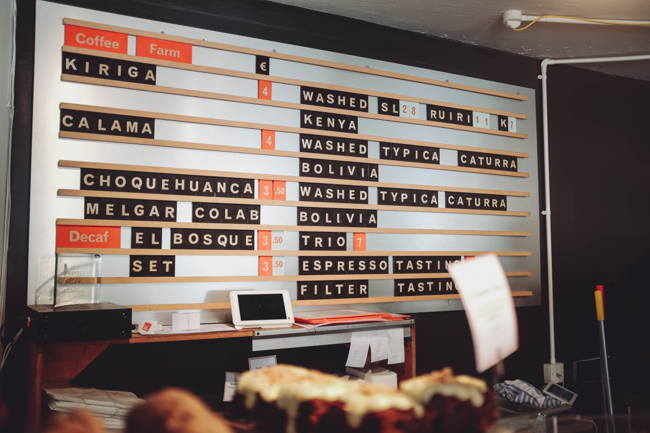 Coffee Farm €
KIRIGA 4 WASHED SL 28 RUIRI 11 K 7
KENYA
CALAMA 4 WASHED TYPICA CATURRA
BOLIVIA
CHOQUEHUANCA 3.50 WASHED TYPICA CATURRA
MELGAR COLAB BOLIVIA
Decaf EL BOSQUE 3.50 TRIO 7
SET 3.50 ESPRESSO TASTING
FILTER TASTING